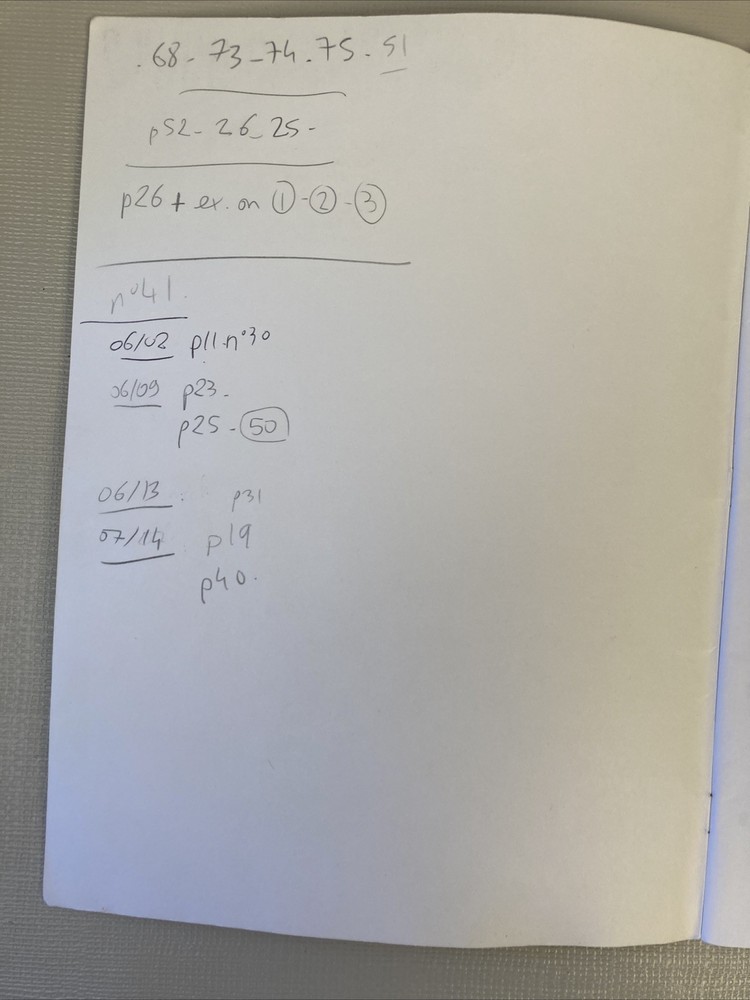 . 68 - 73 - 74 . 75 . 51
p52 - 26 - 25 -
p26 + ex. on ① - ② - ③
n°41.
06/02 p11.n°30
06/09 p23.
p25 - 50
06/13 . p31
07/14 p19
p40.